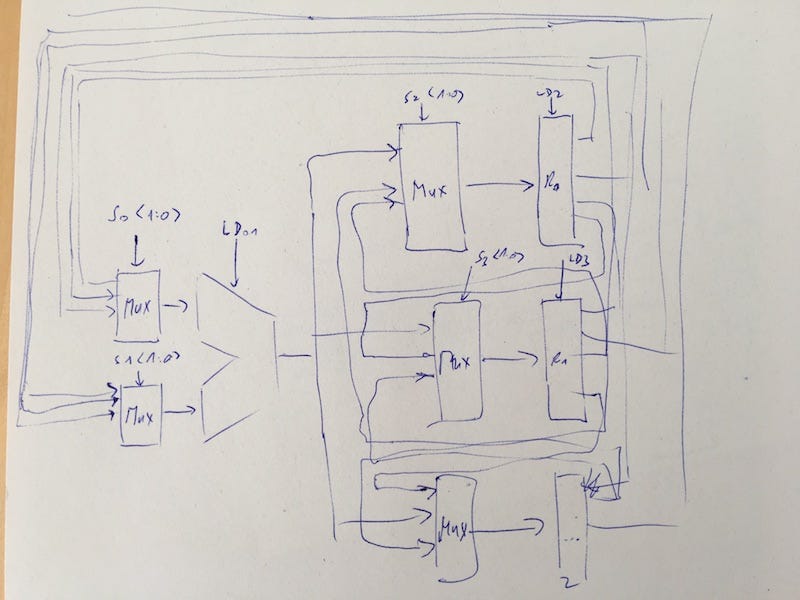 S2<1:0>
LD2
Mux
R0
S0<1:0>
LD01
S3<1:0>
LD3
Mux
S1<1:0>
Mux
R1
Mux
Mux
...
2